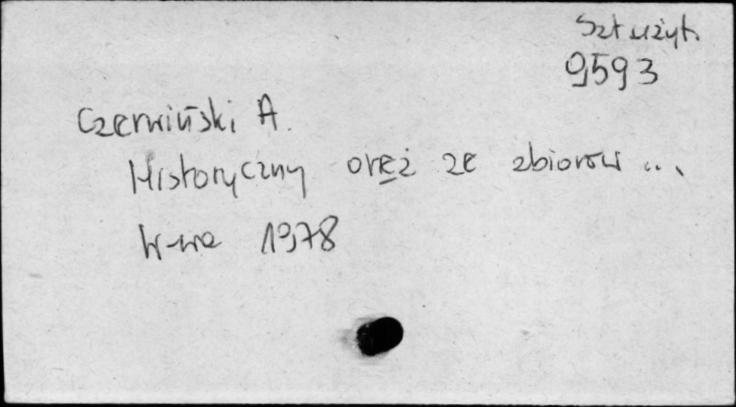 Szt użyt.
9593
Czerwiński A.
Historyczny oręż ze zbiorów ...
W-wa 1978